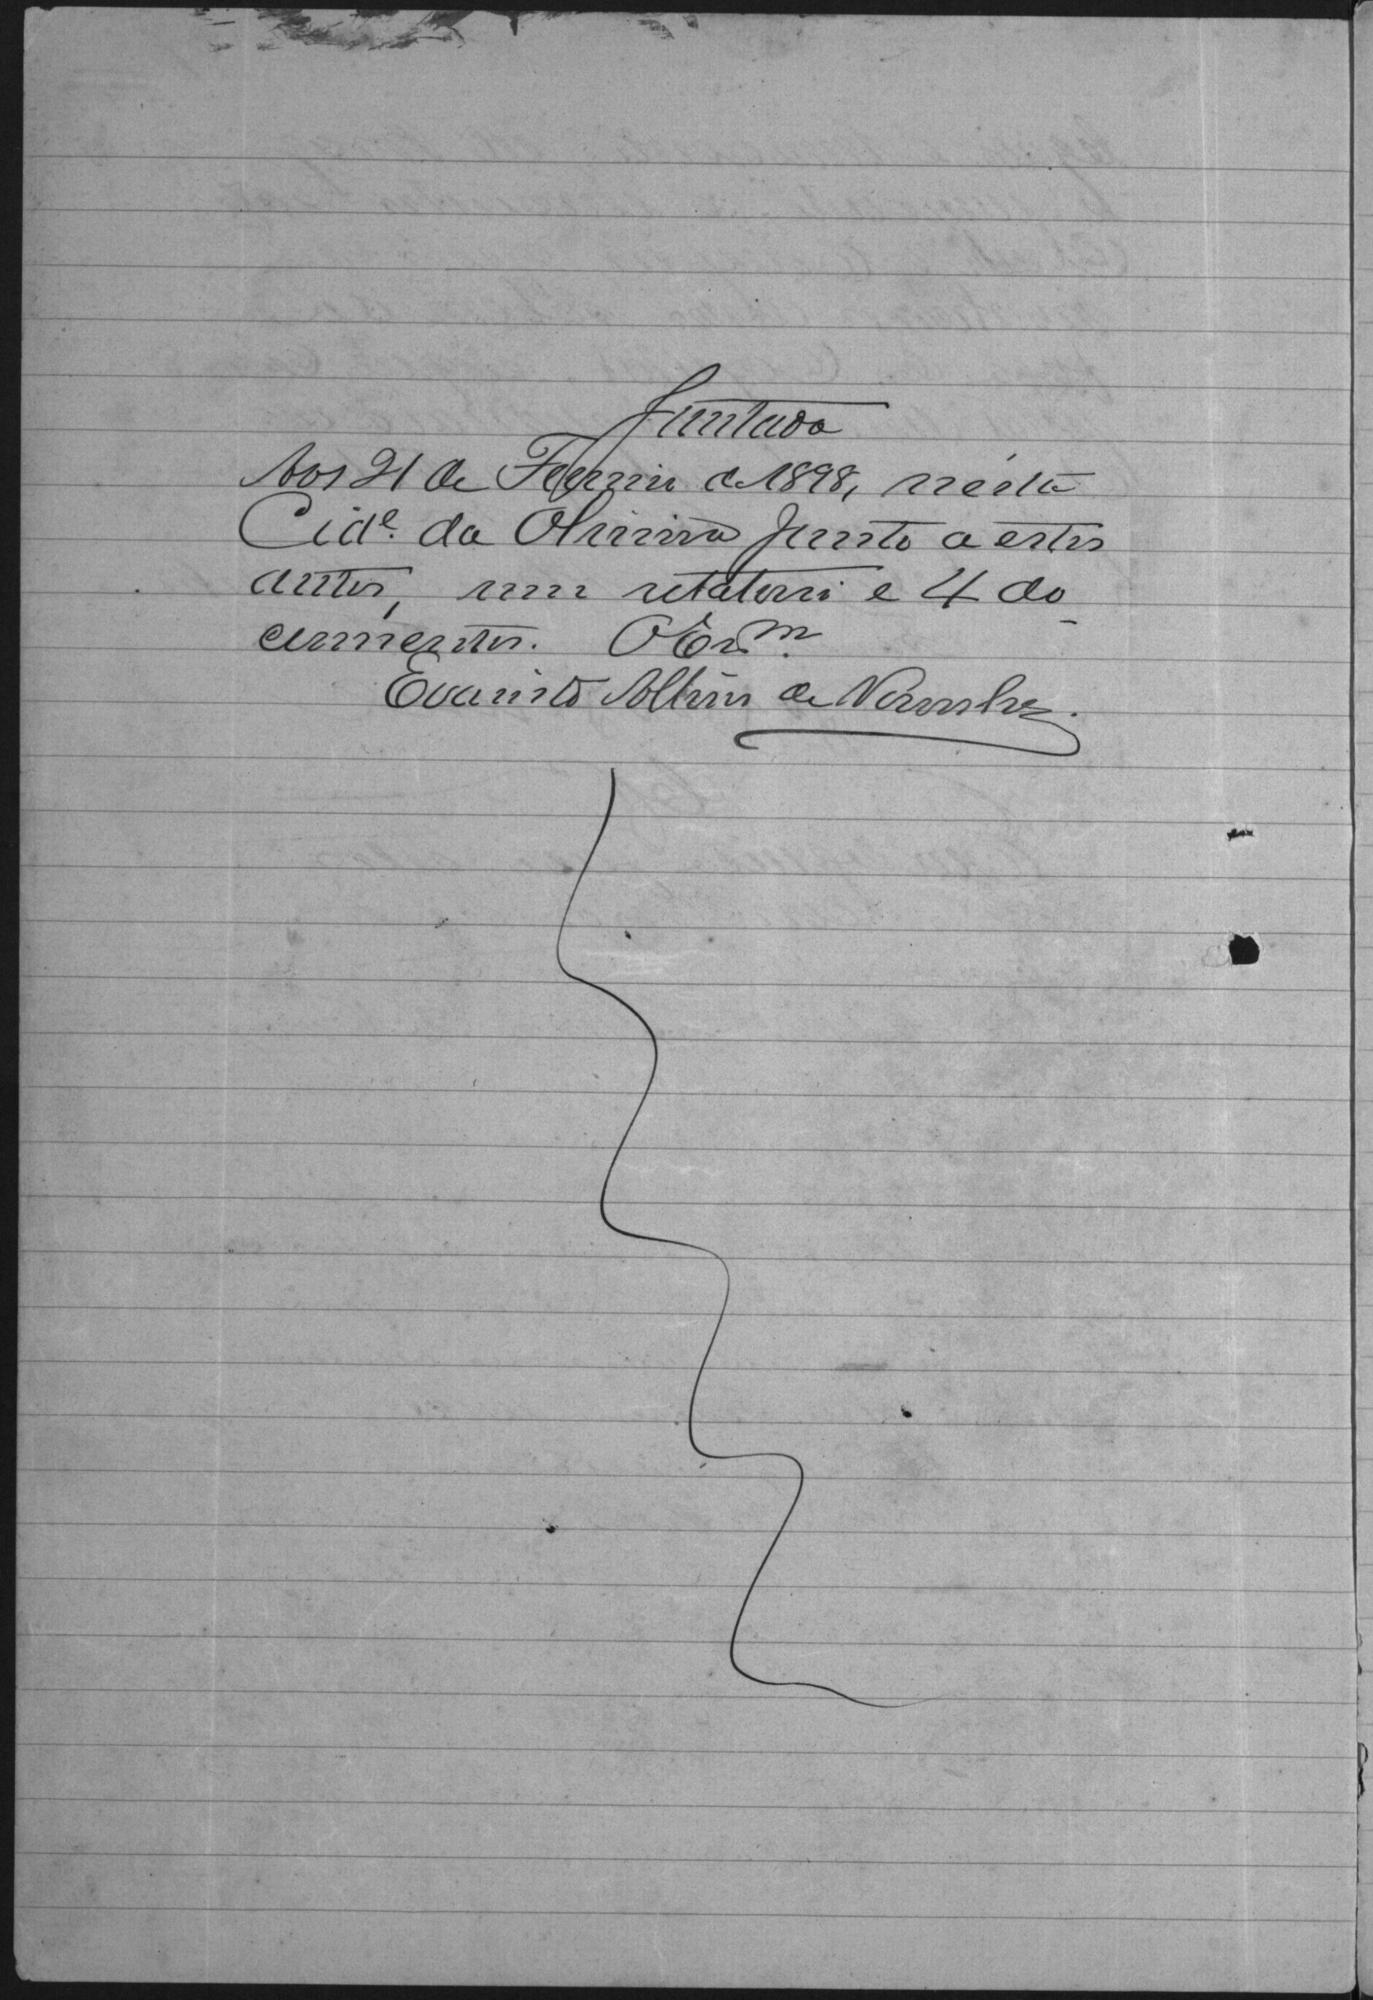 Juntada
Aos 21 de Fevereiro de 1898, nésta
Cid.e da Oliveira junto a estes
autos, um relatorio e 4 do-
cumentos. O Escm.
Evaristo Albino de